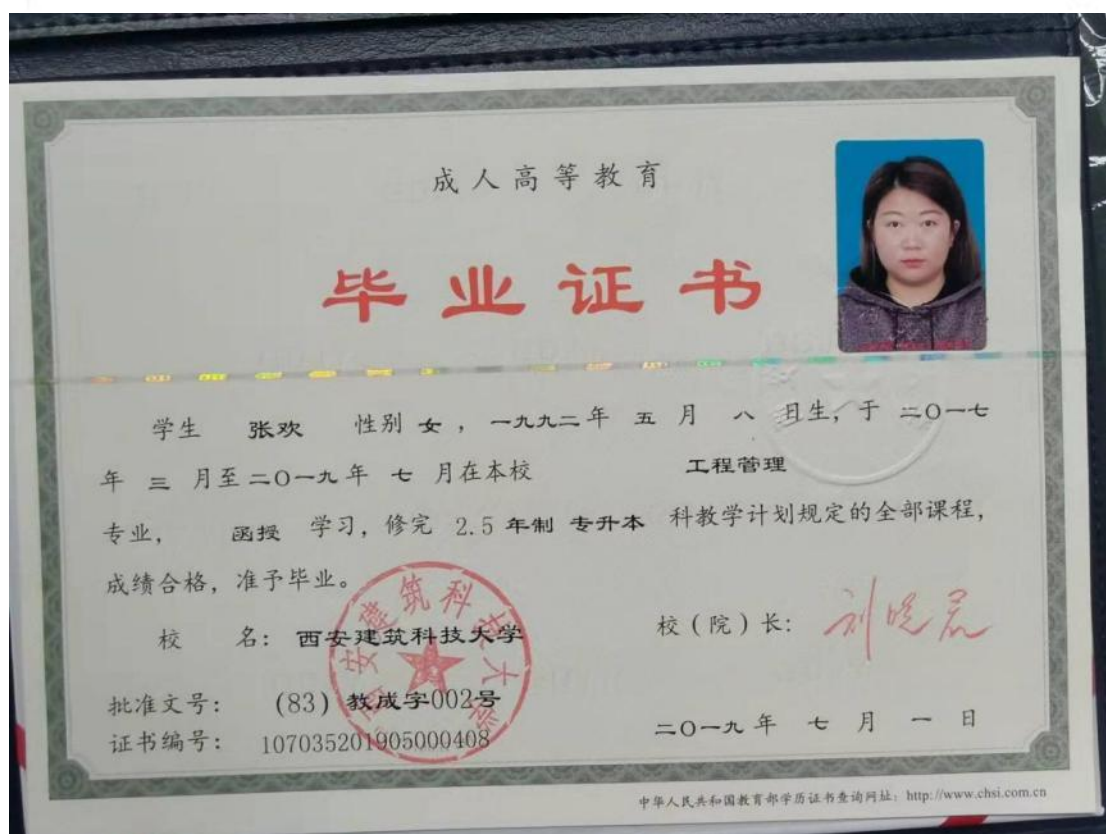 成人高等教育
毕业证书
学生 张欢 性别 女 , 一九九二年 五 月 八 日生, 于 二〇一七
年 三 月至 二〇一九 年 七 月在本校 工程管理
专业, 函授 学习, 修完 2.5 年制 专升本 科教学计划规定的全部课程,
成绩合格, 准予毕业。
校 名: 西安建筑科技大学 校(院)长: 刘晓君
批准文号: (83) 教成字002号
证书编号: 107035201905000408 二〇一九 年 七 月 一 日
西安建筑科技大学
中华人民共和国教育部学历证书查询网址: http://www.chsi.com.cn